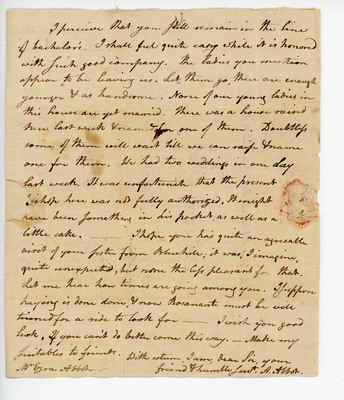 I perceive that you still remain in the line
of bachelors. I shall feel quite easy while it is honored
with such good company. The ladies you mention
appear to be leaving us. Let them go, there are enough
younger & as handsome. None of our young ladies in
this house are yet married. There was a house raised
here last week & named for one of them. Doubtless
some of them will wait till we can raise & name
one for them. We had two weddings in one day
last week. It was unfortunate that the present
here was not fully authorized. It might
have been something in his pocket as well as a
little cake. I hope you had quite an agreeable
visit of your sister from Bluehill; it was, I imagine,
quite unexpected, but none the less pleasant for that.
Let me hear how times are going among you. I suppose
haying is done & now Rosanante must be well
trimed for a ride to look for — I wish you good
luck, if you can't do better come this way. — Make my
to friends. With esteem I am, dear Sir, your
Mr Ezra Abbot. friend & humble Servt. A. Abbot.